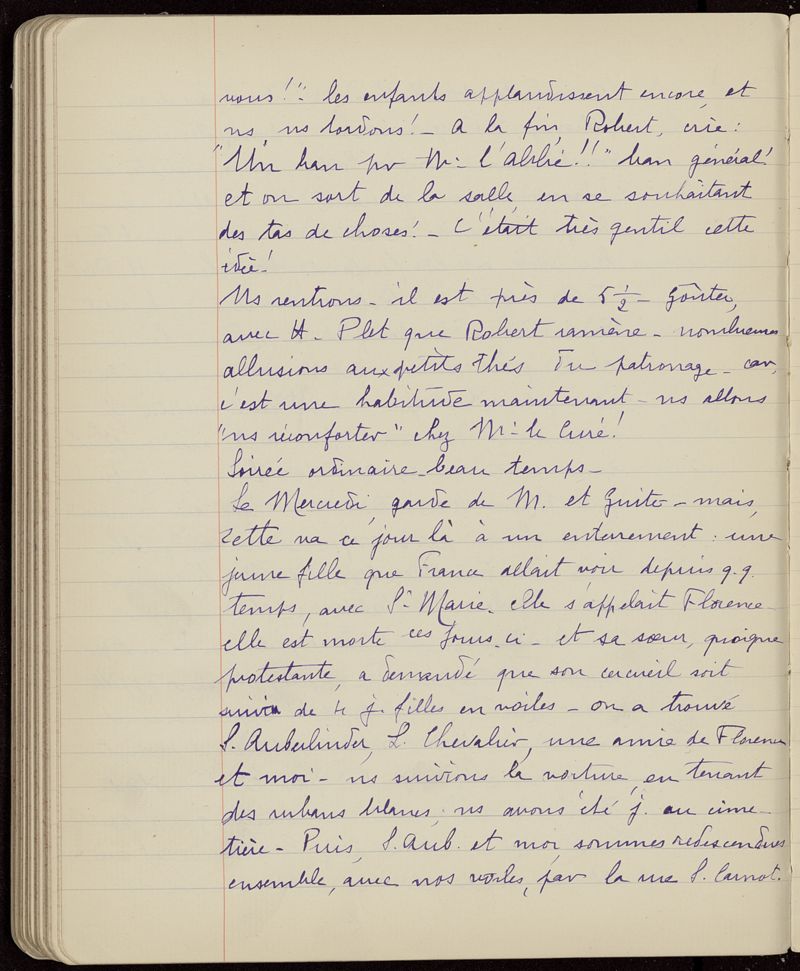 vous!" les enfants applaudissent encore, et
ns, ns tordons! - A la fin, Robert, crie :
"Un ban pr Mr l'Abbé!!" ban général!
et on sort de la salle, en se souhaitant
des tas de choses! - C'était très gentil cette
idée!
Ns rentrons - il est près de 5 1/2 - Goûter,
avec H. Plet que Robert ramène - nombreuses
allusions aux petits thés du patronage - car,
c'est une habitude maintenant - ns allons
"ns réconforter" chez Mr le Curé!
Soirée ordinaire - beau temps -
Le Mercredi, garde de M. et Guite - mais,
cette va ce jour là à un enterrement : une
jeune fille que France allait voir depuis q.q.
temps, avec Sr Marie. elle s'appelait Florence -
elle est morte ces jours-ci - et sa sœur, quoique
protestante, a demandé que son cercueil soit
suivi de 4 j. filles en voiles - on a trouvé
S. Auberlinder, L. Chevalier, une amie de Florence
et moi - ns suivions la voiture, en tenant
des rubans blancs; ns avons été j. au cime-
tière - Puis, S. Aub. et moi, sommes redescendues
ensemble, avec nos voiles, par la rue S. Carnot.